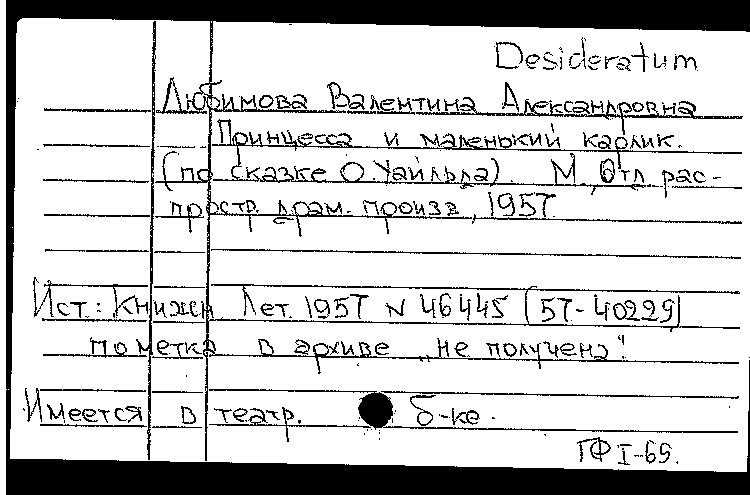 Desideratum
Любимова Валентина Александровна
Принцесса и маленький карлик.
(по сказке О.Уайльда). М., Отд. рас-
простр. драм. произв., 1957
Ист: Книжн Лет. 1957 N 46445 [57-40229]
пометка в архиве „не получена".
Имеется в театр. б-ке.
ГФ I-69.